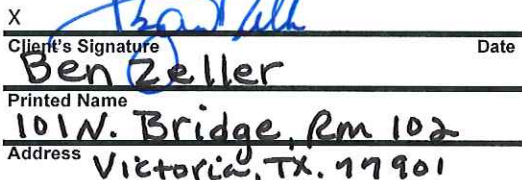 X
Client's Signature Date
Ben Zeller
Printed Name
101 N. Bridge, Rm 102
Address Victoria, TX. 77901